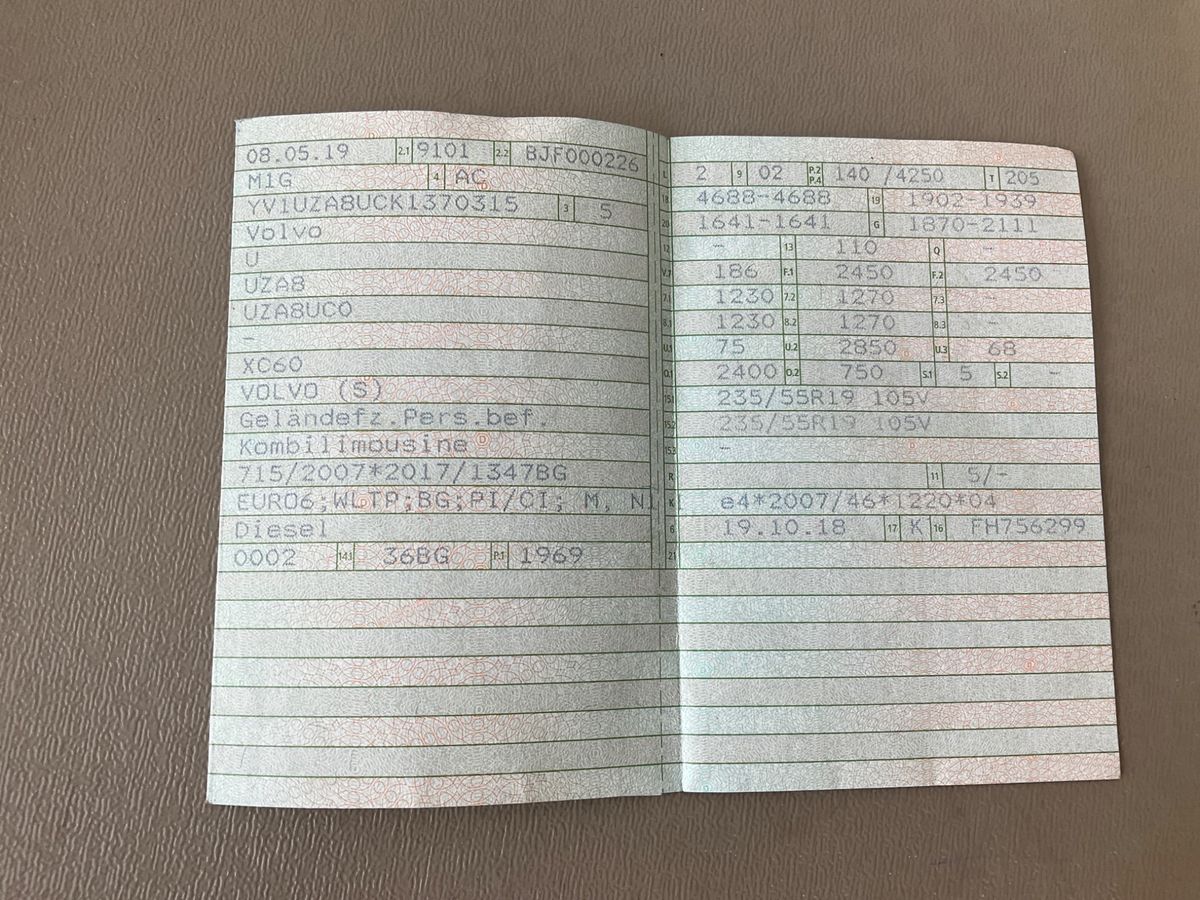 08.05.19 2.1 9101 2.2 BJF000226
M1G 4 AC
YV1UZA8UCK1370315 3 5
Volvo
U
UZA8
UZA8UC0
-
XC60
VOLVO (S)
Geländefz.Pers.bef.
Kombilimousine
715/2007*2017/1347BG
EURO6;WLTP;BG;PI/CI; M, N1
Diesel
0002 14.1 36BG P.1 1969
L 2 9 02 P.2 P.4 140 /4250 T 205
18 4688-4688 19 1902-1939
20 1641-1641 G 1870-2111
12 - 13 110 Q -
V.7 186 F.1 2450 F.2 2450
7.1 1230 7.2 1270 7.3 -
8.1 1230 8.2 1270 8.3 -
U.1 75 U.2 2850 U.3 68
O.1 2400 O.2 750 S.1 5 S.2 -
15.1 235/55R19 105V
15.2 235/55R19 105V
15.3 -
R 11 5/-
K e4*2007/46*1220*04
6 19.10.18 17 K 16 FH756299
21